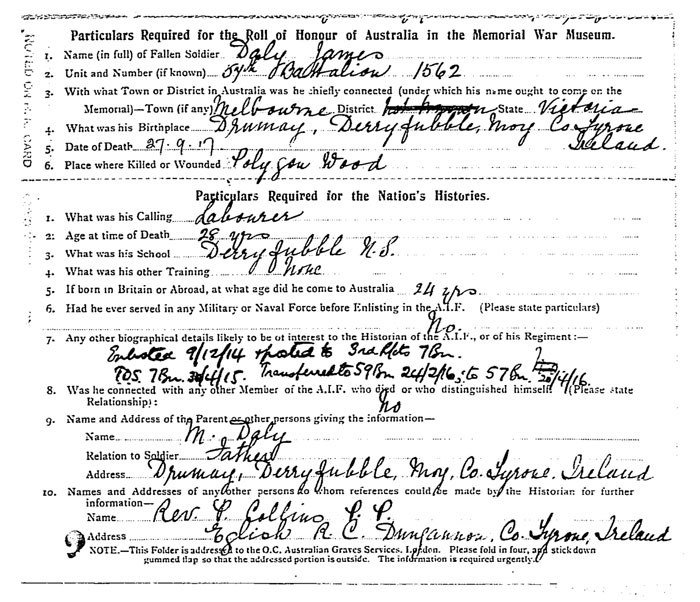 NOTED ON R.R. CARD
Particulars Required for the Roll of Honour of Australia in the Memorial War Museum.
1. Name (in full) of Fallen Soldier Daly James
2. Unit and Number (if known) 57th Battalion 1562
3. With what Town or District in Australia was he chiefly connected (under which his name ought to come on the
Memorial)—Town (if any) Melbourne District State Victoria
4. What was his Birthplace Drumay, Derryfubble, Moy Co. Tyrone
Ireland.
5. Date of Death 27.9.17
6. Place where Killed or Wounded Polygon Wood
Particulars Required for the Nation's Histories.
1. What was his Calling Labourer
2. Age at time of Death 28 yrs
3. What was his School Derryfubble N.S.
4. What was his other Training None
5. If born in Britain or Abroad, at what age did he come to Australia 24 yrs.
6. Had he ever served in any Military or Naval Force before Enlisting in the A.I.F. (Please state particulars)
No.
7. Any other biographical details likely to be of interest to the Historian of the A.I.F., or of his Regiment:—
Enlisted 9/12/14 & posted to 3rd Rfts 7 Bn.
TOS. 7 Bn. /4/15. Transferred to 59 Bn 24/2/16; to 57 Bn. /4/16.
8. Was he connected with any other Member of the A.I.F. who died or who distinguished himself (Please state
Relationship): No
9. Name and Address of the Parent or other persons giving the information—
Name M. Daly
Relation to Soldier Father
Address Drumay, Derryfubble, Moy, Co. Tyrone. Ireland
10. Names and Addresses of any other persons to whom references could be made by the Historian for further
information—
Name Rev. P. Collins P.P.
Address Eglish R.C. Dungannon, Co. Tyrone, Ireland
NOTE.—This Folder is addressed to the O.C. Australian Graves Services, London. Please fold in four, and stick down
gummed flap so that the addressed portion is outside. The information is required urgently.